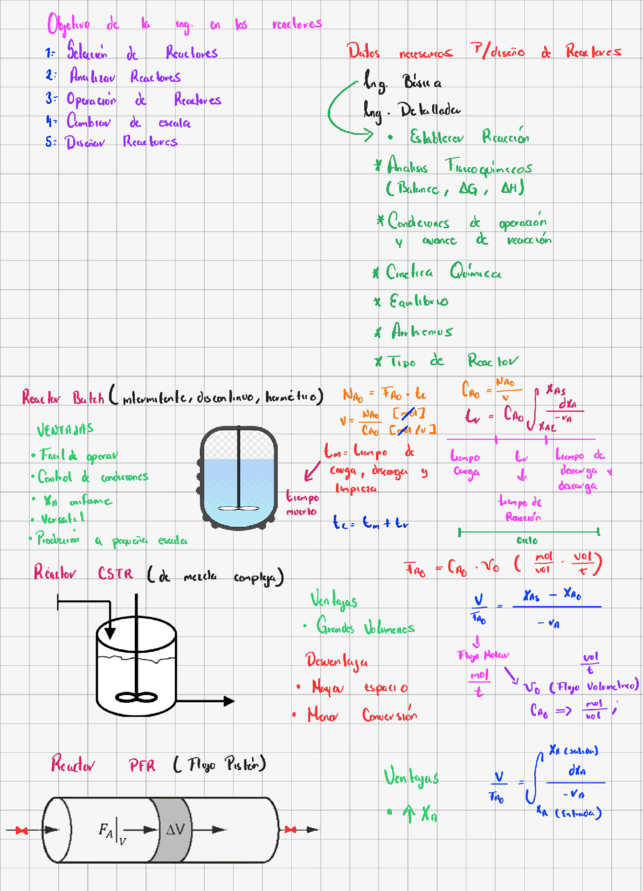 Objetivo de la ing. en los reactores
1: Selección de Reactores
2: Analizar Reactores
3: Operación de Reactores
4: Cambiar de escala
5: Diseñar Reactores
Datos necesarios P/diseño de Reactores
Ing. Básica
Ing. Detallada
• Establecer Reacción
* Analisis Fisicoquímicos
(Balance, ΔG, ΔH)
* Condiciones de operación
y avance de reacción
* Cinética Química
* Equilibrio
* Arrhenius
* Tipo de Reactor
Reactor Batch (intermitente, discontinuo, hermético)
VENTAJAS
• Facil de operar
• Control de condiciones
• XA uniforme
• Versatil
• Producción a pequeña escala
NAo = FAo · tc
V = NAo/CAo [mol]/[mol/v]
tm = tiempo de
carga, descarga y
limpieza
tiempo
muerto
tc = tm + tr
CAo = NAo/v
tr = CAo ∫ XAE XAS dXA/-rA
tiempo
carga
tr
tiempo de
Reacción
tiempo de
descarga y
descarga
Ciclo
Reactor CSTR (de mezcla completa)
Ventajas
• Grandes Volumenes
Desventaja
• Mayor espacio
• Menor Conversión
FAo = CAo · V0 (mol/vol · vol/t)
V/FAo = XAS - XAo/-rA
Flujo Molar
mol/t
vol/t
V0 (Flujo Volumetrico)
CAo => mol/vol ;
Reactor PFR (Flujo Pistón)
FA|V
ΔV
Ventajas
• ↑ XA
V/FAo = ∫ XA (Entrada) XA (Salida) dXA/-rA